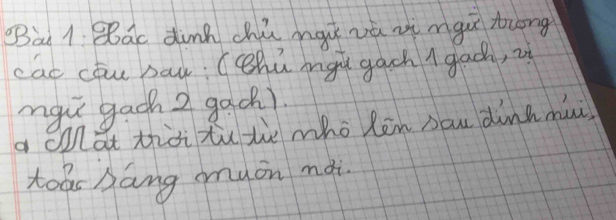 Bài 1: Xác định chủ ngữ và vị ngữ trong
các câu sau: (Chủ ngữ gạch 1 gạch, vị
ngữ gạch 2 gạch).
a Mặt trời từ từ nhô lên sau đỉnh núi,
toả sáng muôn nơi.